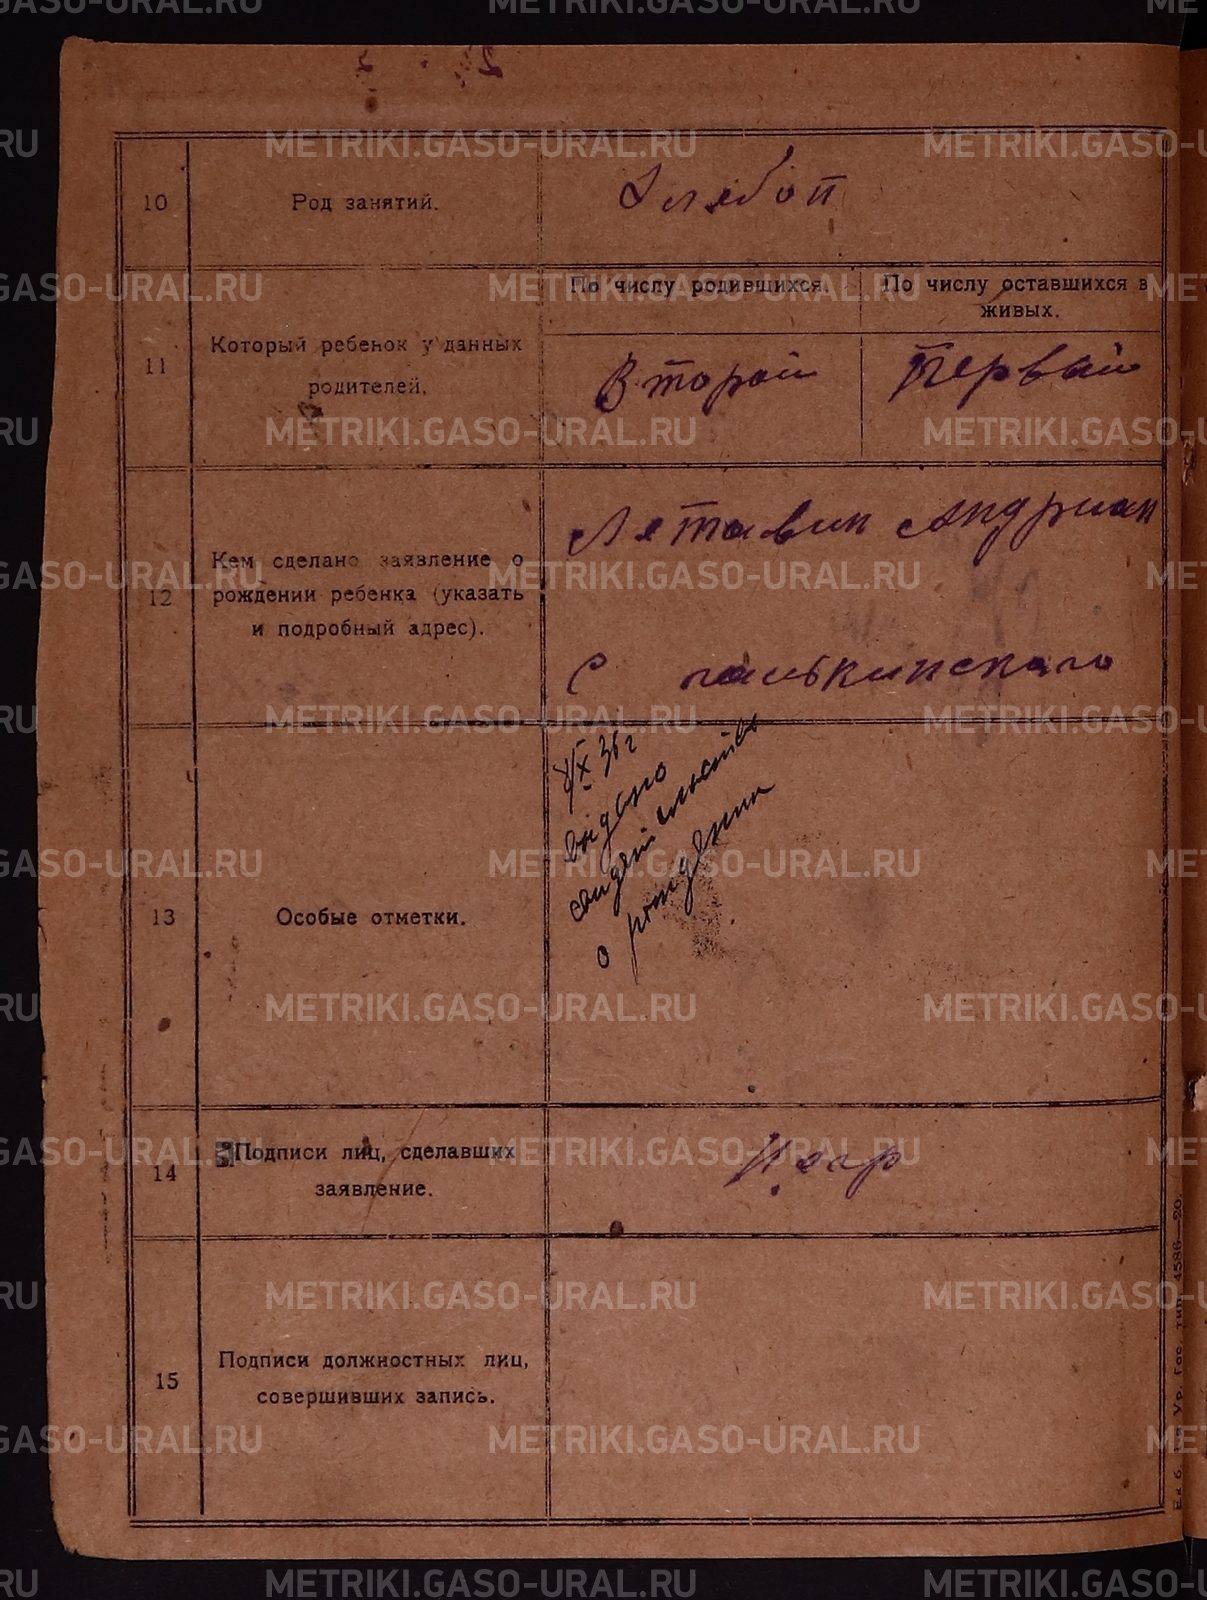 10
Род занятий.
Хлебоп
11
Который ребенок у данных
родителей.
По числу родившихся.
По числу оставшихся в
живых.
Второй
Первай
12
Кем сделано заявление о
рождении ребенка (указать
и подробный адрес).
Лятавин Андриан
С
13
Особые отметки.
X 36 г
выдано
свидетельство
о рождении
14
Подписи лиц, сделавших
заявление.
15
Подписи должностных лиц,
совершивших запись.
Ур. Гос. тип. 4586—20.
METRIKI.GASO-URAL.RU